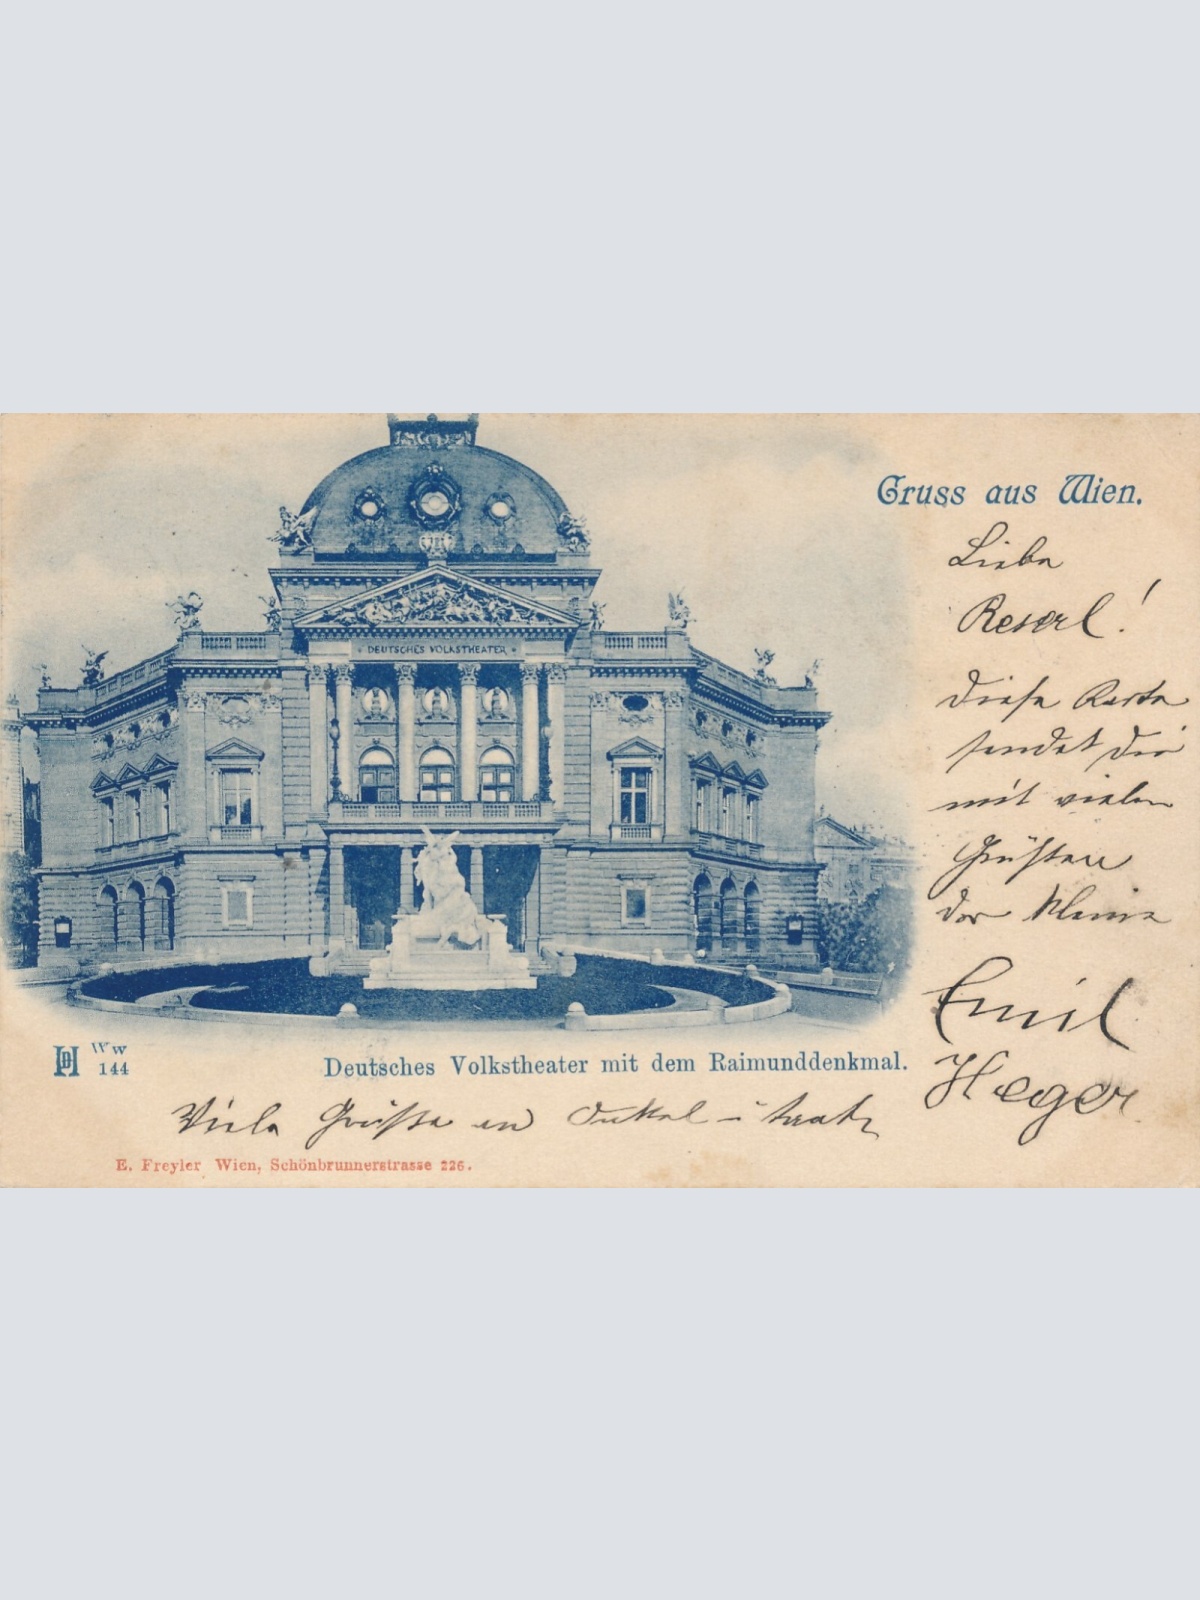 Gruss aus Wien.
Liebe
Reserl!
Diese Karte
sendet Dir
mit vielen
Grüßen
der kleine
Emil
Heger
DEUTSCHES VOLKSTHEATER
W W
144
Deutsches Volkstheater mit dem Raimunddenkmal.
Viele Grüße an Onkel
E. Freyler Wien, Schönbrunnerstrasse 226.